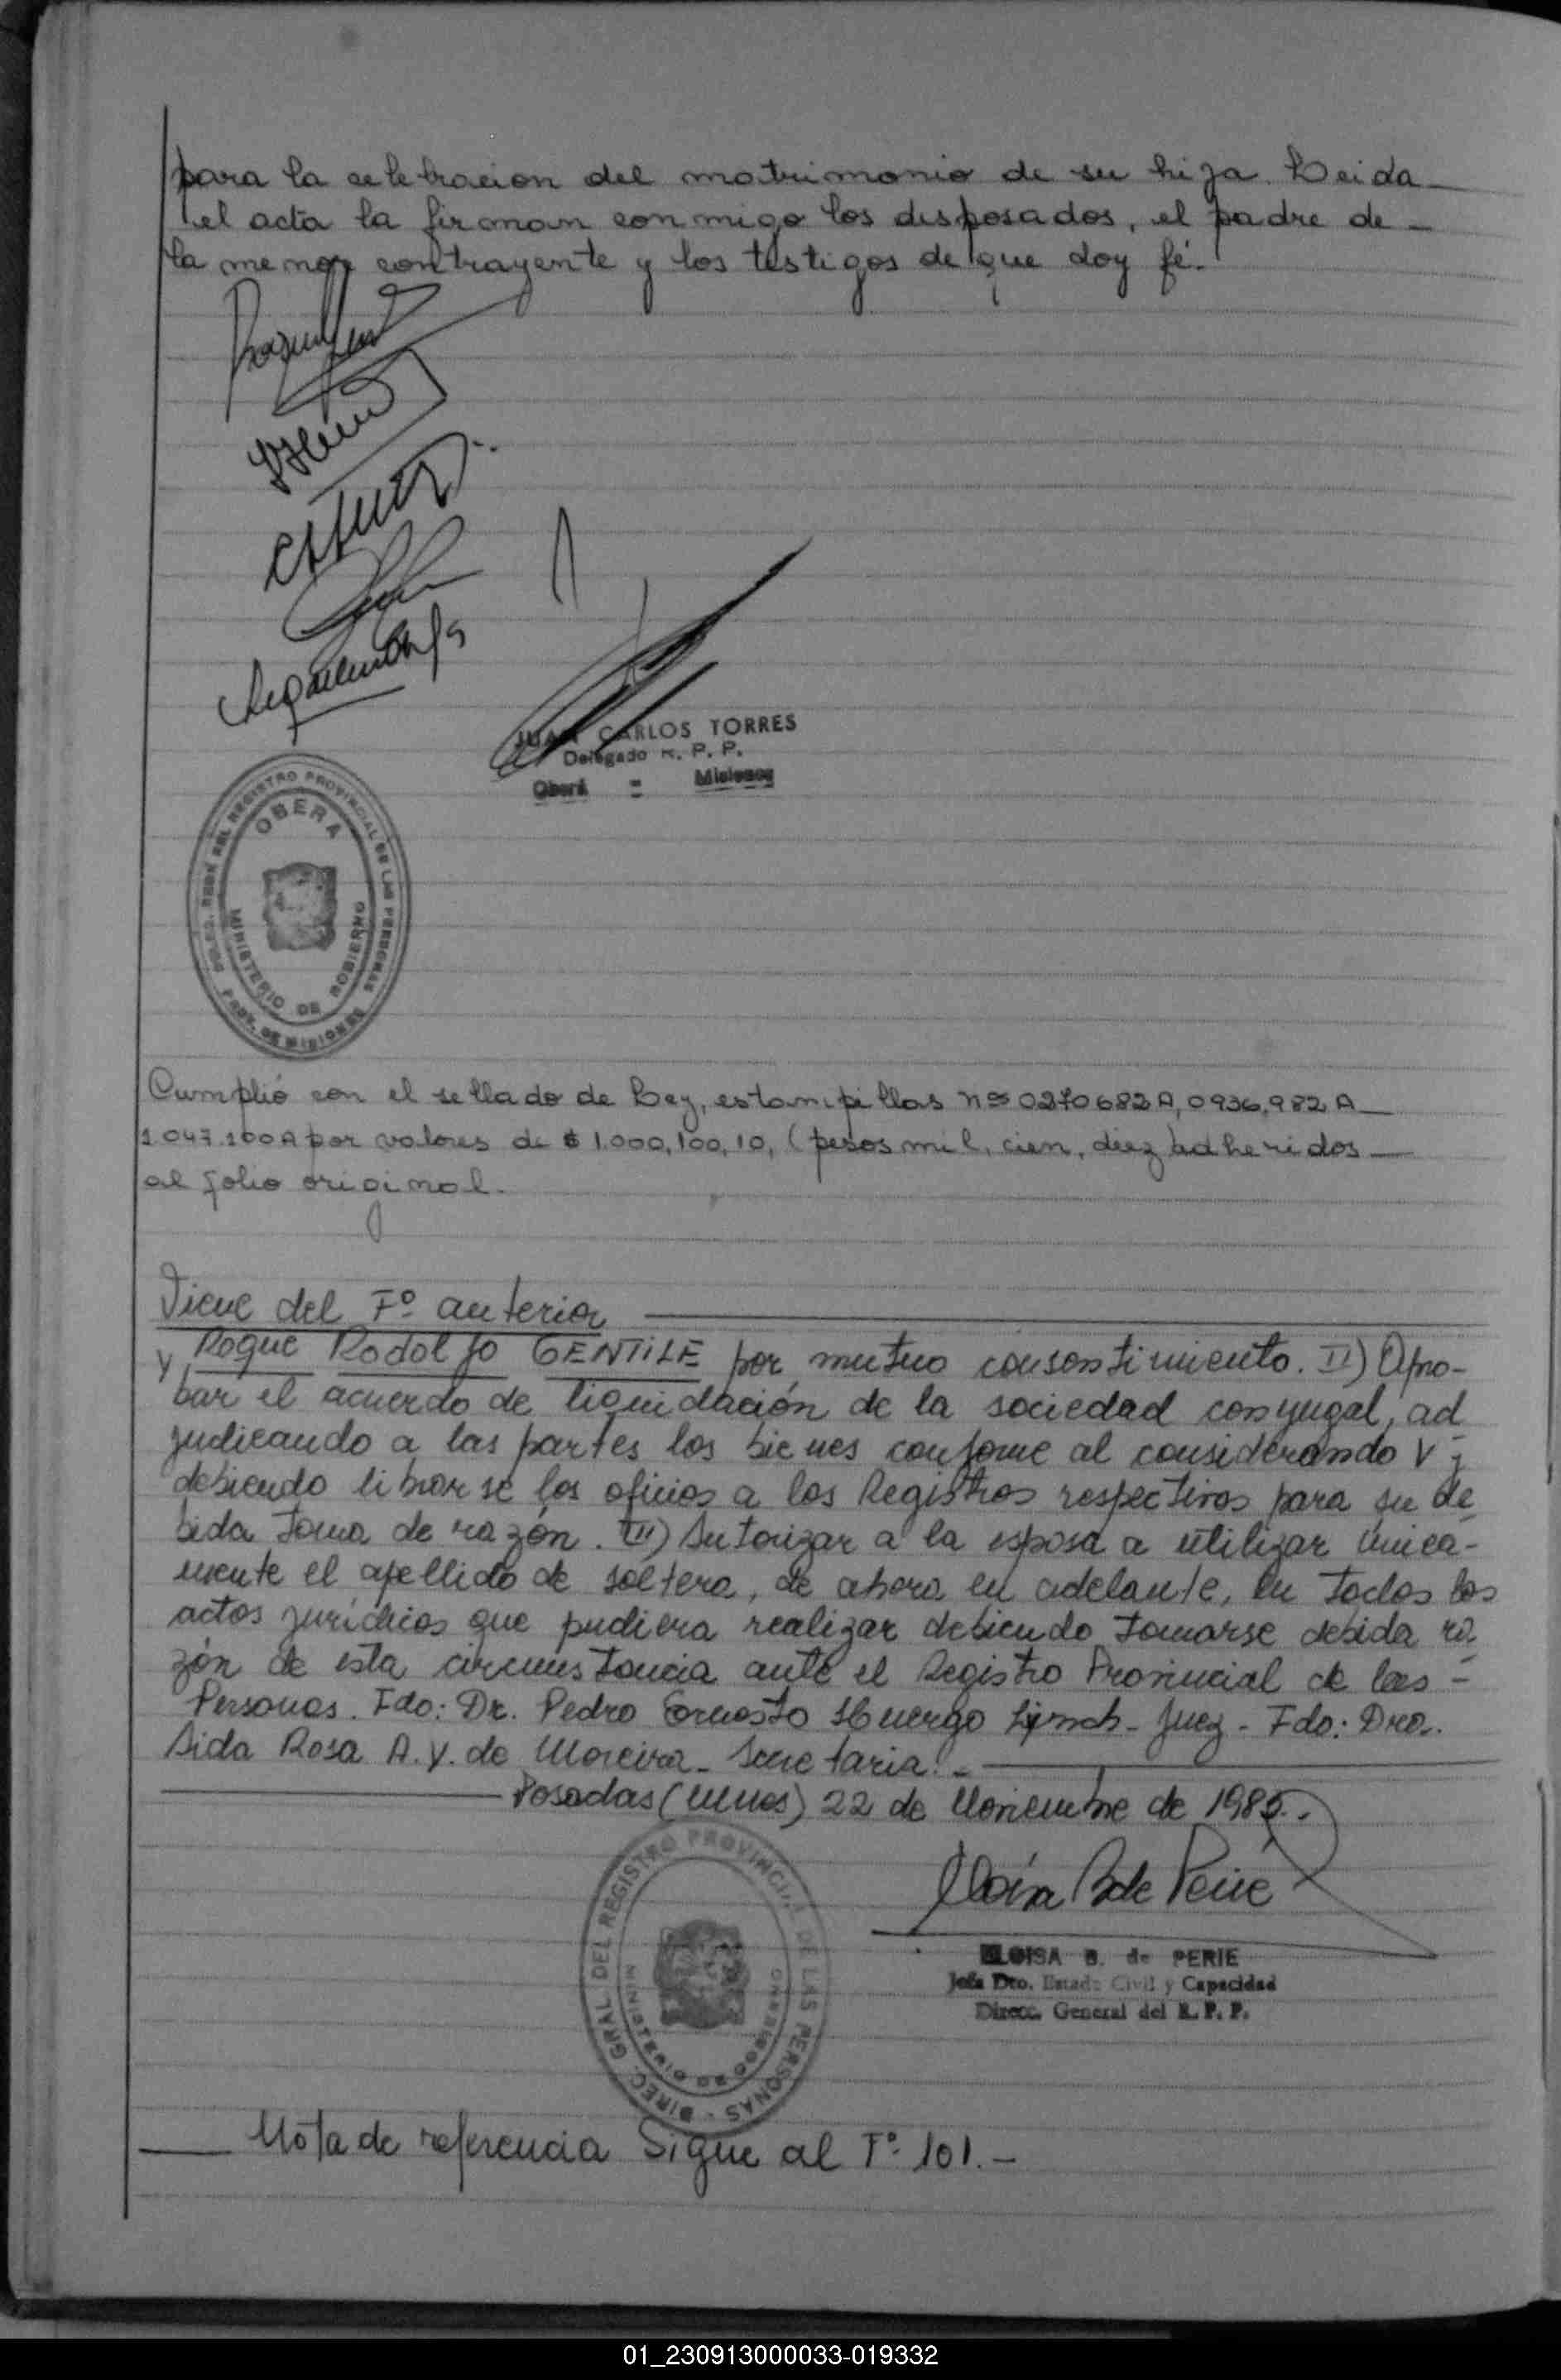 para la celebracion del matrimonio de su hija Leida
el acta la firman conmigo los disposados, el padre de
la menor contrayente y los testigos de que doy fé.
JUAN CARLOS TORRES
Delegado R. P. P.
Oberá - Misiones
REGISTRO PROVINCIAL DE LAS PERSONAS
PROV. DE MISIONES
OBERA
MINISTERIO DE GOBIERNO
Cumplió con el sellado de Ley, estampillas nos 0270682A, 0936.982A
1.047.100A por valores de $ 1.000,100,10, (pesos mil, cien, diez) adheridos
al folio original.
Viene del Fº anterior
y Roque Rodolfo GENTILE por mutuo consentimiento. II) Apro-
bar el acuerdo de liquidación de la sociedad conyugal, ad
judicando a las partes los bienes conforme al considerando V;
debiendo librarse los oficios a los Registros respectivos para su de
bida toma de razón. III) Autorizar a la esposa a utilizar única-
mente el apellido de soltera, de ahora en adelante, en todos los
actos jurídicos que pudiera realizar debiendo tomarse debida ra
zón de esta circunstancia ante el Registro Provincial de las -
Personas. Fdo: Dr. Pedro Ernesto Huergo Lynch - Juez - Fdo: Dra.
Aida Rosa A.Y. de Moreira - Secretaria. -
Posadas (Mnes) 22 de Noviembre de 1985.
Eloisa B de Perie
ELOISA B. de PERIE
Jefa Dto. Estado Civil y Capacidad
Direcc. General del R. P. P.
DIREC. GRAL. DEL REGISTRO PROVINCIAL DE LAS PERSONAS
MINISTERIO DE GOBIERNO
Nota de referencia Sigue al Fº 101.-
01_230913000033-019332